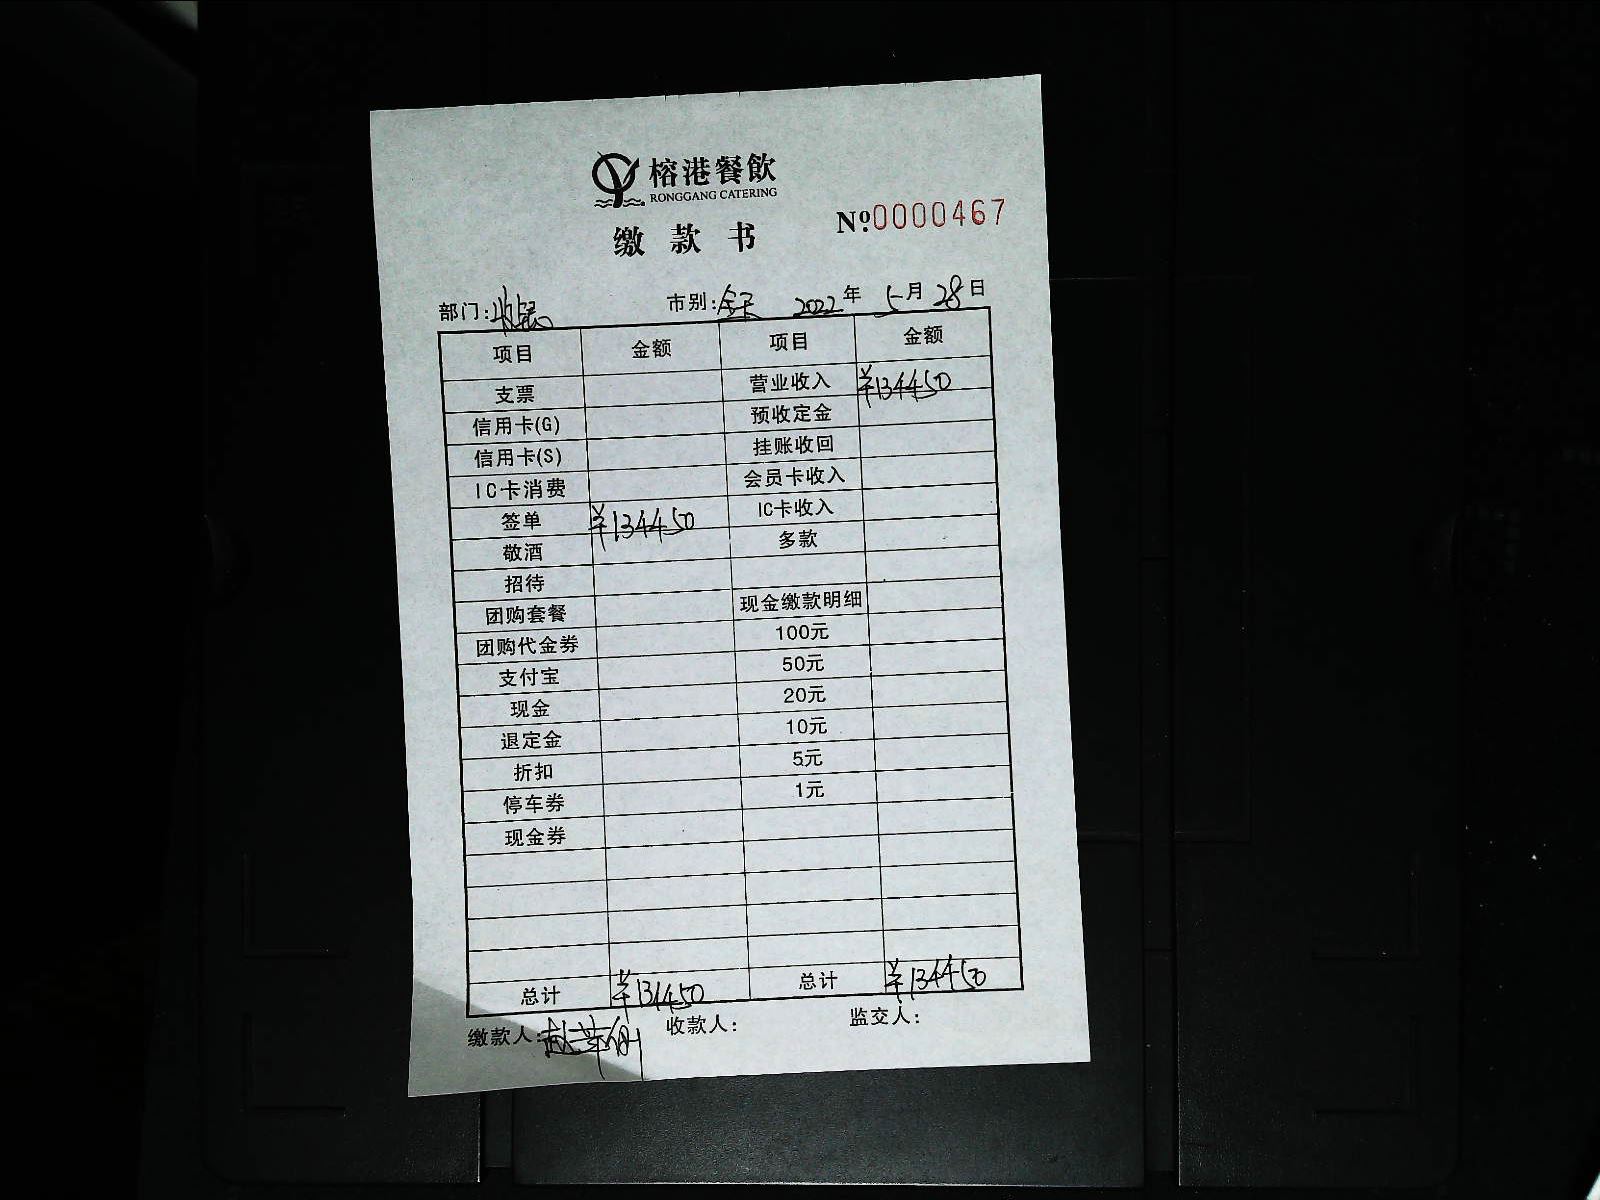 榕港餐飲
RONGGANG CATERING
缴款书 Nº.0000467
部门:收银 市别:全天 2022年 5月28日
项目 金额 项目 金额
支票 营业收入 ¥134450
信用卡(G) 预收定金
信用卡(S) 挂账收回
IC卡消费 会员卡收入
签单 ¥134450 IC卡收入
敬酒 多款
招待
团购套餐 现金缴款明细
团购代金券 100元
支付宝 50元
现金 20元
退定金 10元
折扣 5元
停车券 1元
现金券
总计 ¥134450 总计 ¥134450
缴款人: 收款人: 监交人: